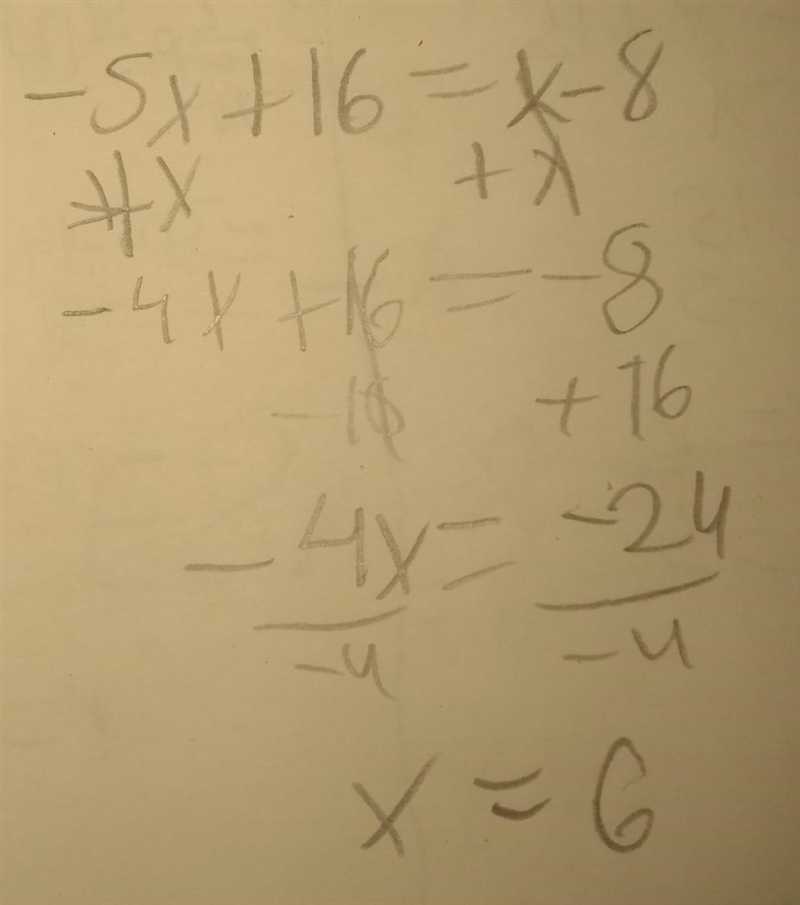 -5x+16=x-8
+x +x
-4x+16=-8
-16 +16
-4x=-24
-4 -4
x=6